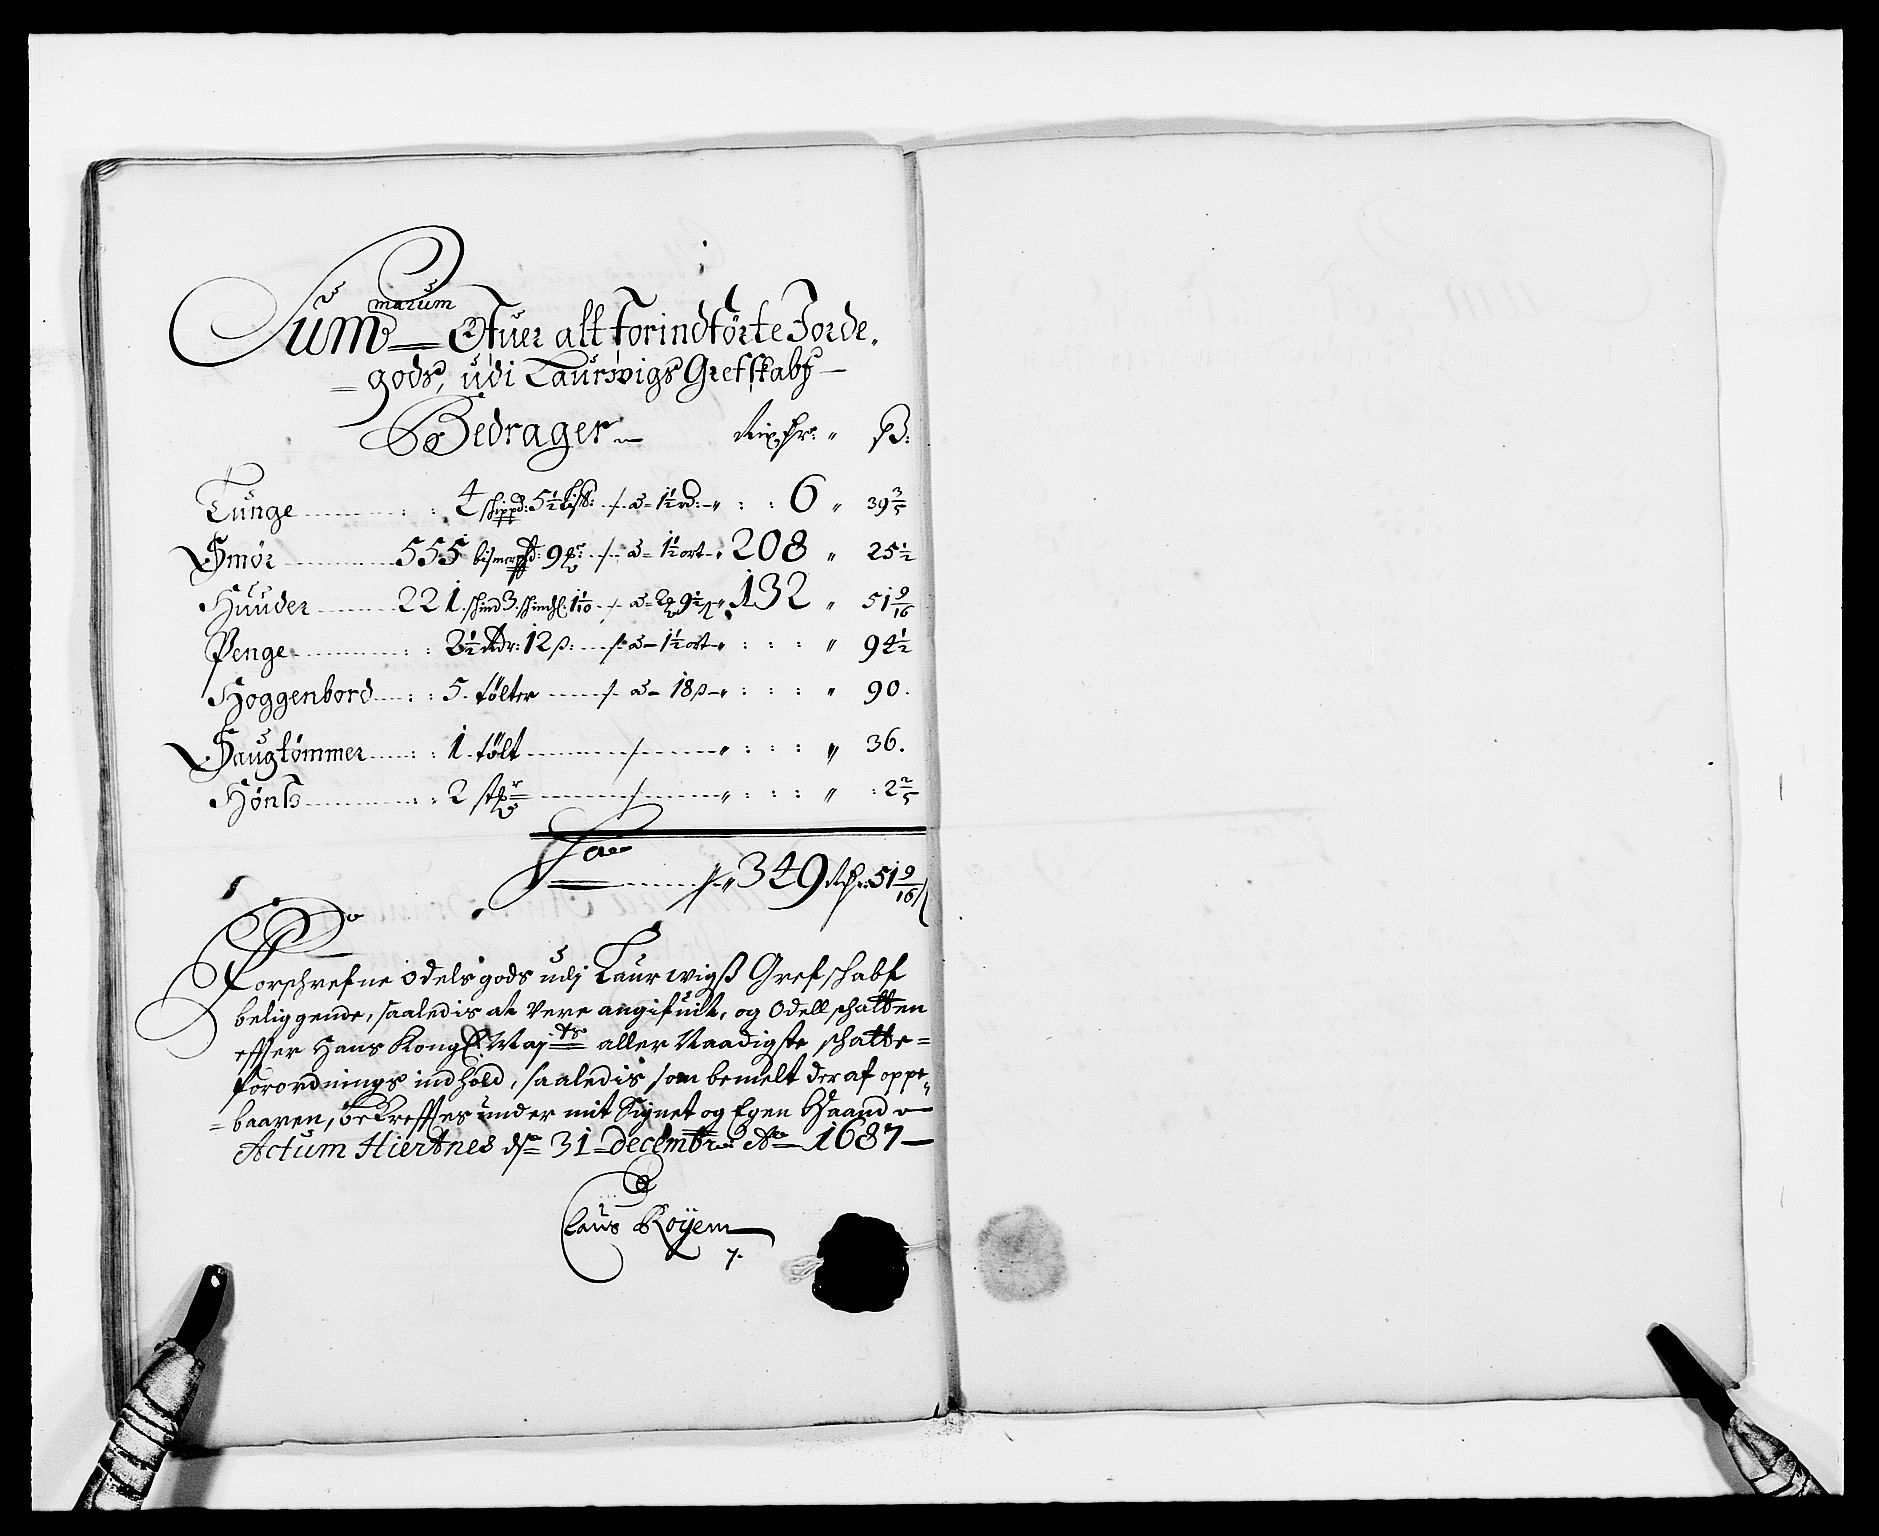 Summarum Ofuer alt forindførte Jorde-
gods, udi Laurvigs Grefskabs
Bedrager Rixdr: ß:
Tunge 4 skippd: 5½ lis℔: a 1½ rd: 6 39 3/5
Smør 555 bismerpd: 9 a 1½ ort 208 25½
Huuder 221 skind 3 1/10 a 9½ ß 132 51 9/16
Penge 2½ Rdr: 12 ß: a 1½ ort 94½
Hoggenbord 5 tølter a 18 ß 90
Saugtømmer 1 tølt 36.
Høns 2 stkr 2 2/5
Sa 349 Rdr: 51 9/16
Forschrefne Odelsgods udj Laurwigß Grefschabf
beliggende, saaledis at vere angifuit, og Odellschatten
effter Hans Kongl: Maj:ts aller Naadigste schatte=
forordnings indhold, saaledis som bemelt deraf oppe
=baaren, bekrefftes under mit Signet og Egen Haand
Actum Hiertnes ds 31 decembris Ao 1687
Claus Røyem